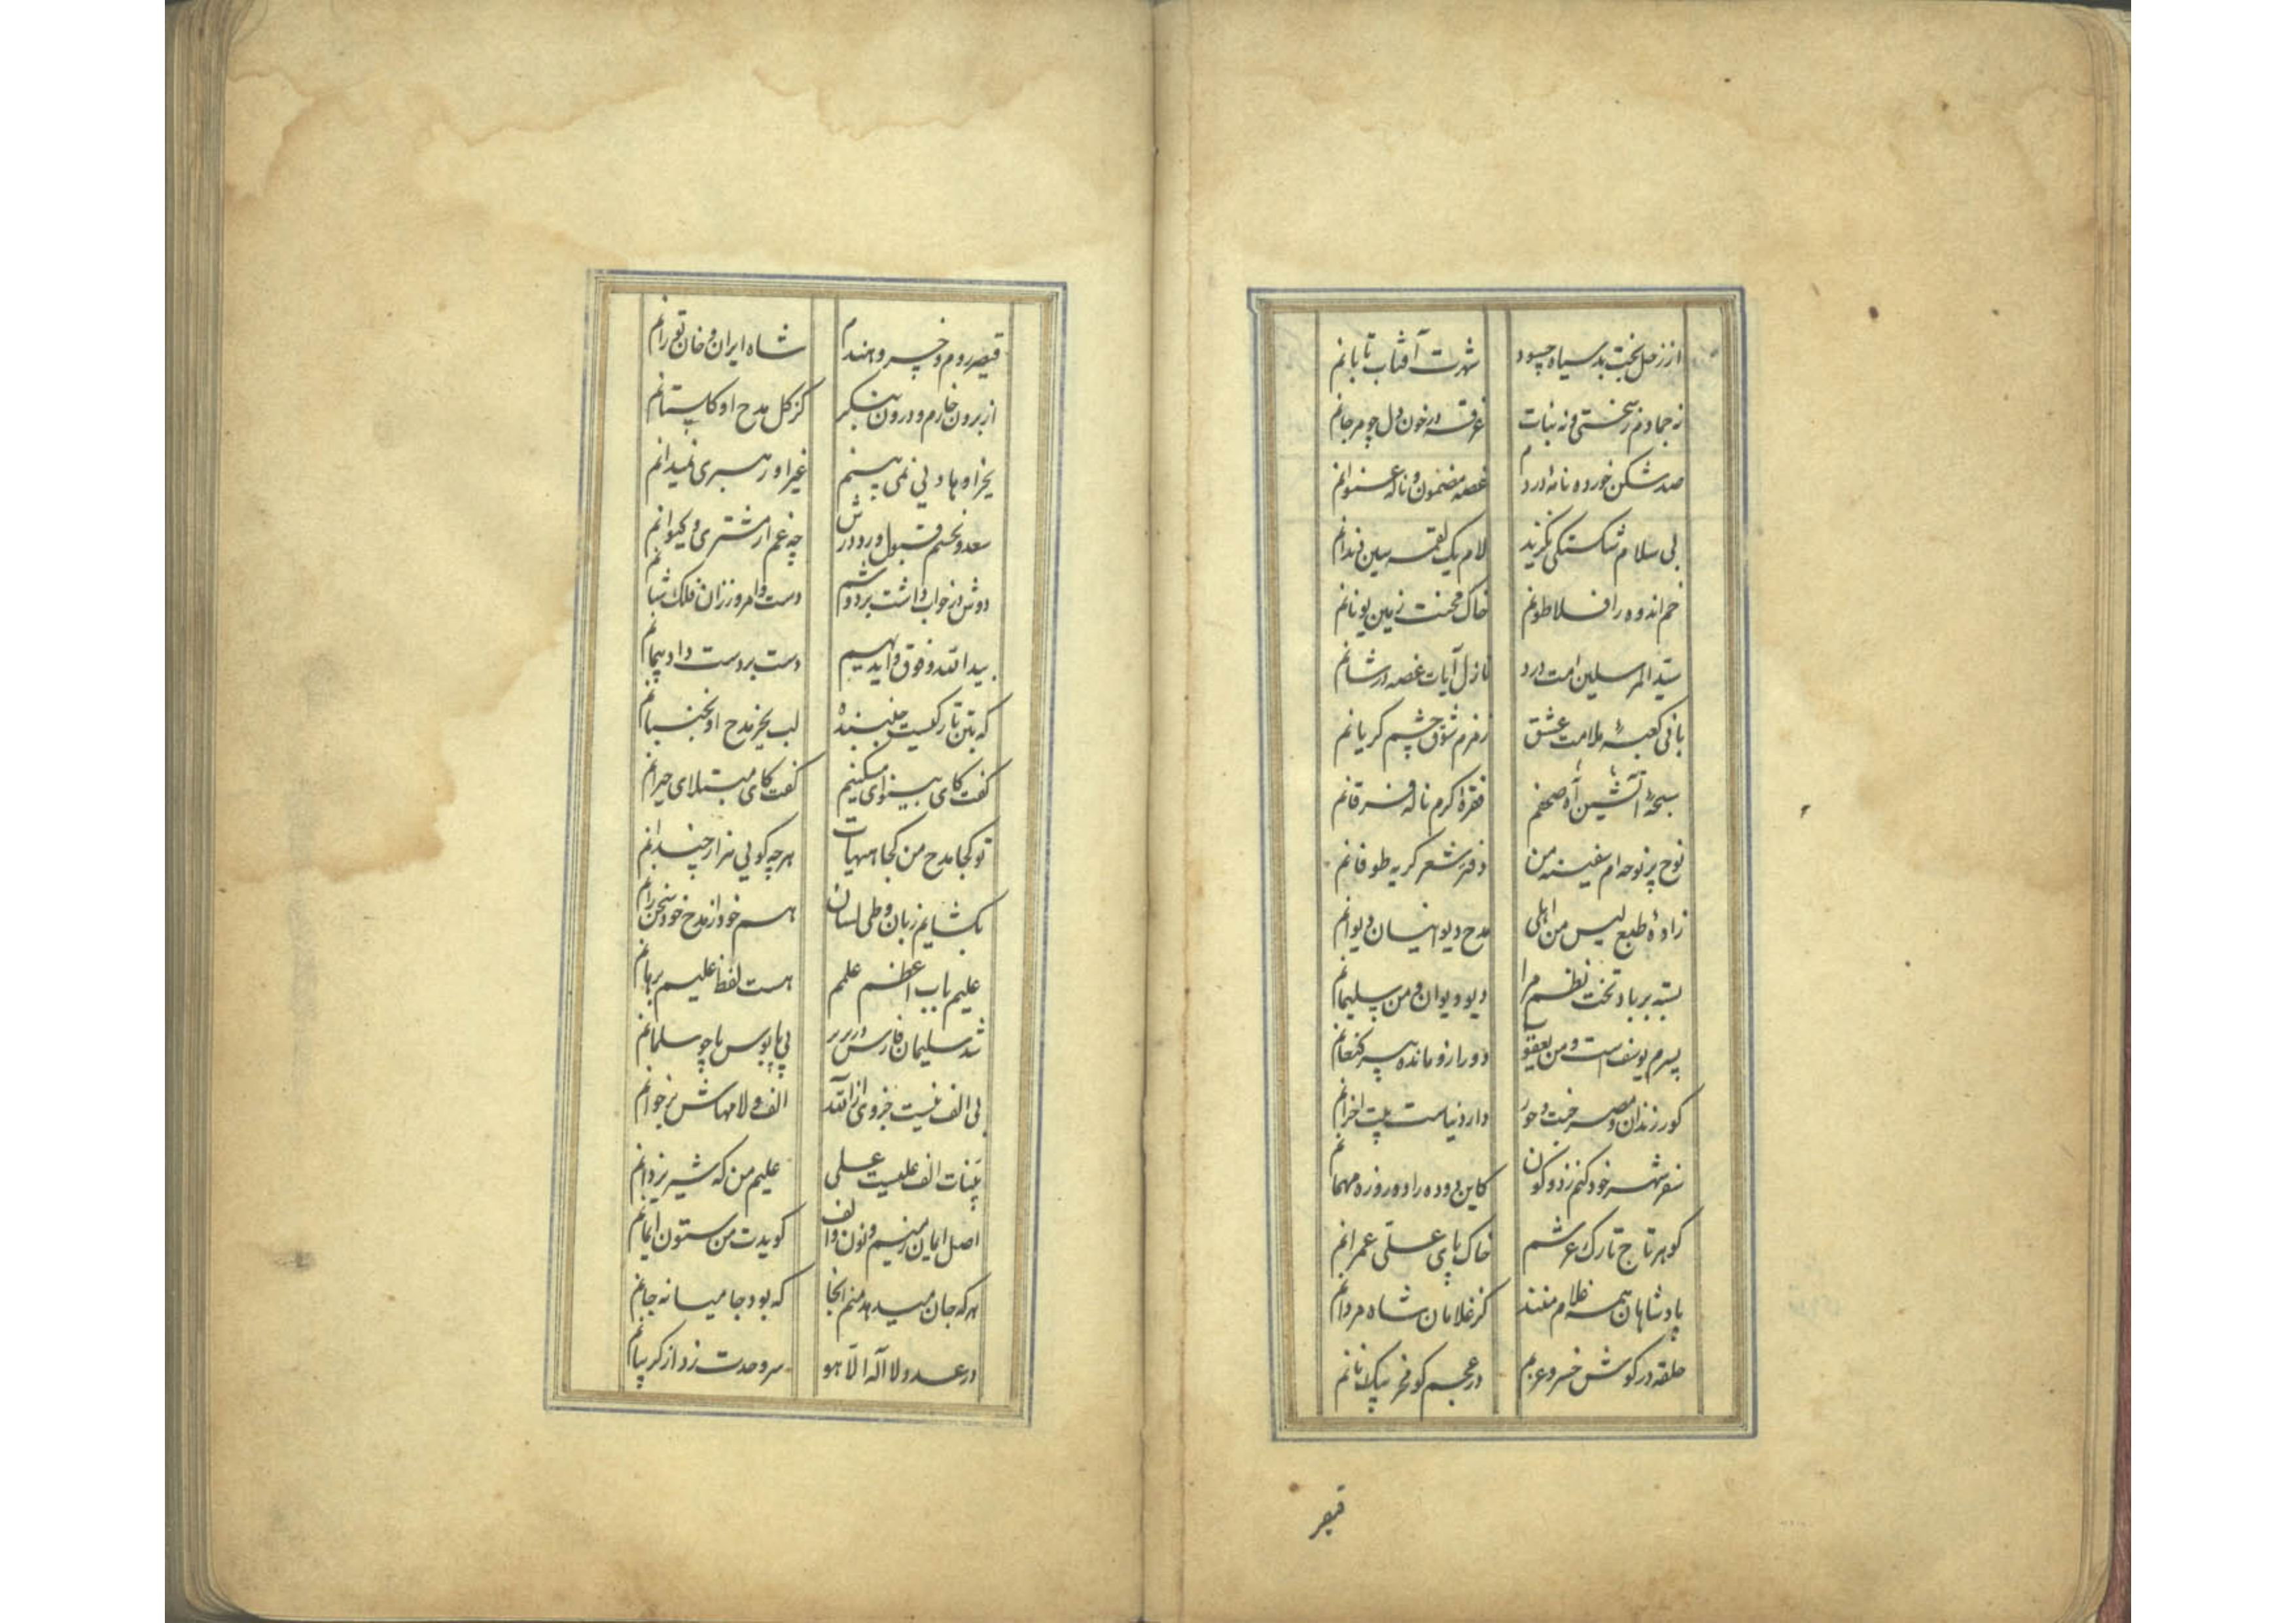 از زحل بخت بد سیاه چه سود شهرت آفتاب تابانم
نه جمادم ز سختی و نه نبات غرقه در خون دل چو مرجانم
صد شکن خورده نامهٔ دردم غصه مضمون و ناله عنوانم
بی سلام شکستگی نگزید لام یک لقمه سین دندانم
خم اندوه را فلاطونم خاک محنت زمین یونانم
سید المرسلین امت درد نازل آیات غصه در شانم
بانی کعبهٔ ملامت عشق زمزم شوق چشم گریانم
سبحهٔ آتشین آه صحفم فقرهٔ اکرم ناله فرقانم
نوح پر نوحه‌ام سفینه من دفتر شعر گریه طوفانم
زادهٔ طبع لیس من اهلی مدح دیو انیسان دیوانم
بسته بر باد تخت نظم مرا دیو دیوان و من سلیمانم
پسرم یوسف است و من یعقوب دور ازو مانده پیر کنعانم
کور زندان و مصر خت و حور دار دنیاست بیت احزانم
سفر شهر خود کنم ز دو کون کاین دو ده را دو روزه مهمانم
گوهر تاج تارک عرشم خاک پای علی عمرانم
پادشاهان همه غلام منند کز غلامان شاه مردانم
حلقه در گوش خسرو عربم در عجم گو مخر بیک نانم
قیصر
قیصر روم و خسرو هندم شاه ایران و خان تورانم
از برون خارم و درون بنگر کز گل مدح او گلستانم
بجز او هادیی نمی‌بینم غیر او رهبری نمیدانم
سعد و نحسم قبول و رد درش چه غم از مشتری و کیوانم
دوش در خواب داشت بر دوشم دست و امروز زان فلک شانم
بید الله و فوق ایدیهم دست بر دست داد پیمانم
که بتن تا رگیست جنبنده لب بجز مدح او نجنبانم
گفت کای بینوای مسکینم گفت کای مبتلای حیرانم
تو کجا مدح من کجا هیهات هر چه گویی هزار چندانم
بگشایم زبان و طی لسان هم خود از مدح خود سخن رانم
علیم باب اعظم علمم هست لفظ علیم برهانم
شد سلیمان فارس در بر بی پابوس پا چو سلمانم
بی الف نیست جزوی از الله الف و لامهاش بر خوانم
بینات الف علیست علی علیم من که شیر یزدانم
اصل ایمان منم و نون و الف گویدت من ستون ایمانم
هر که جان میدهد منم آنجا که بود جا میانه جانم
در عدد لا اله الا هو سر وحدت زد از گریبانم